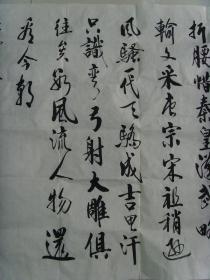 折腰惜秦皇漢武畧
輸文采唐宗宋祖稍逊
风騷一代天驕成吉思汗
只識弯弓射大雕俱
往矣数风流人物還
看今朝